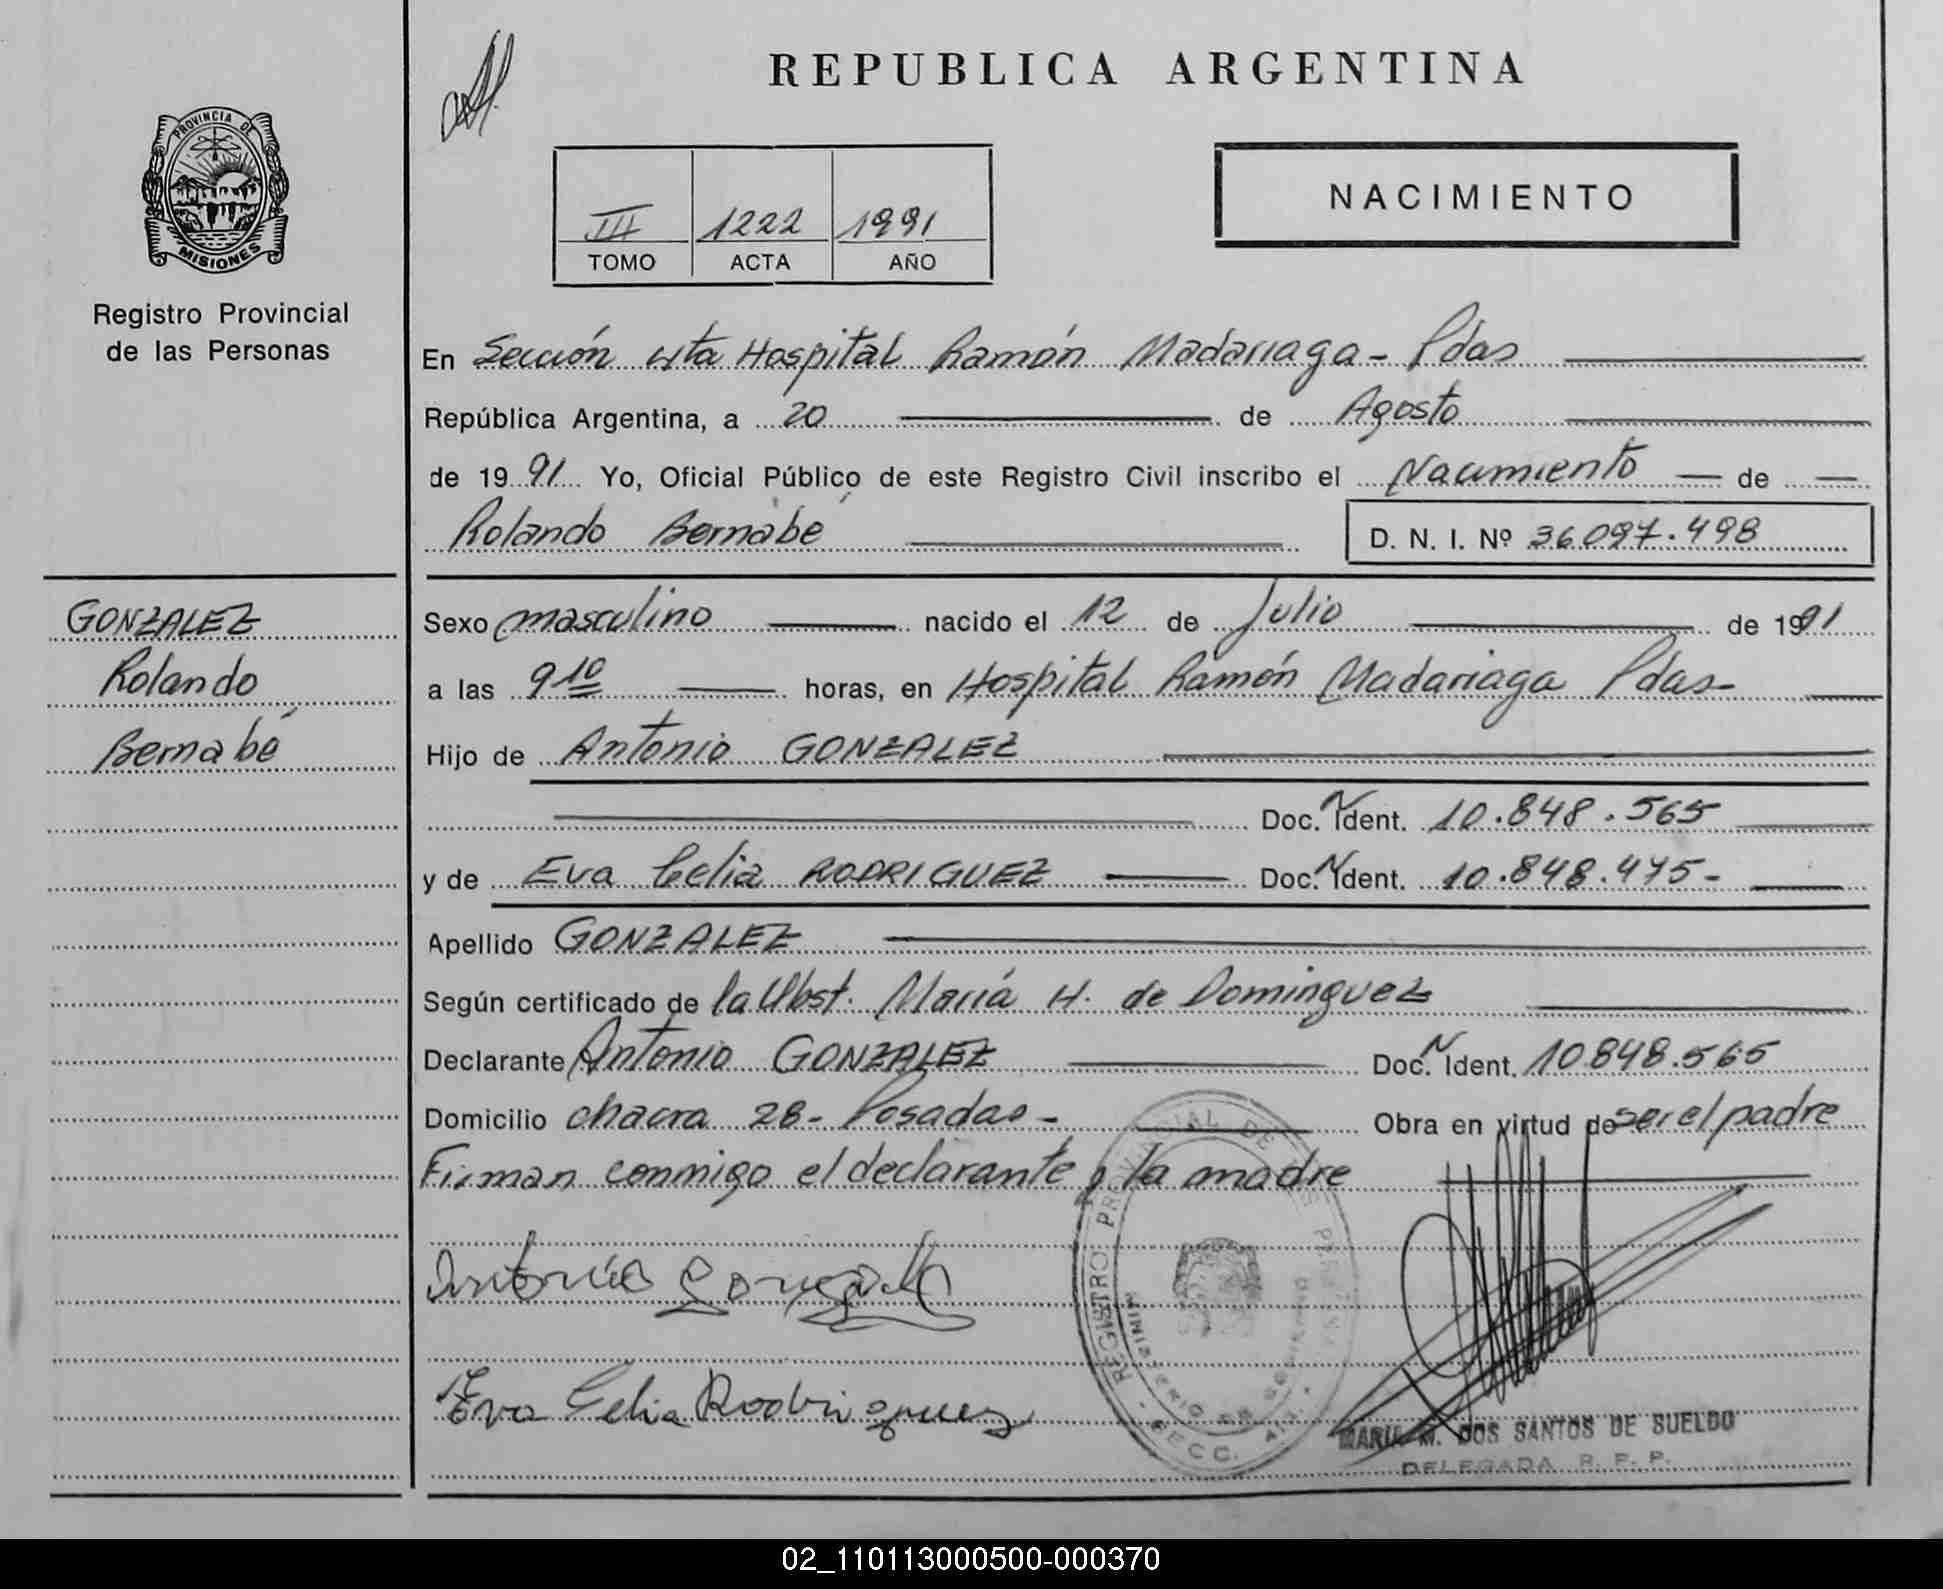 REPUBLICA ARGENTINA
PROVINCIA DE
MISIONES
Registro Provincial
de las Personas
III 1222 1991
TOMO ACTA AÑO
NACIMIENTO
En Sección 4ta Hospital Ramón Madariaga - Pdas
República Argentina, a 20 de Agosto
de 1991 Yo, Oficial Público de este Registro Civil inscribo el Nacimiento de
Rolando Bernabé
D. N. I. Nº 36.097.498
GONZALEZ
Rolando
Bernabé
Sexo masculino nacido el 12 de Julio de 1991
a las 9 10 horas, en Hospital Ramón Madariaga Pdas-
Hijo de Antonio GONZALEZ
Doc. N Ident. 10.848.565
y de Eva Celia RODRIGUEZ Doc. N Ident. 10.848.475-
Apellido GONZALEZ
Según certificado de la Obst. María H. de Dominguez
Declarante Antonio GONZALEZ Doc. N Ident. 10.848.565
Domicilio chacra 28- Posadas- Obra en virtud de ser el padre
Firman conmigo el declarante y la madre
Antonio Gonzalez
Eva Celia Rodriguez
REGISTRO PROVINCIAL DE LAS PERSONAS
MINISTERIO DE GOBIERNO
SECC. 4ta.
MARIA M. DOS SANTOS DE SUELDO
DELEGADA R. P. P.
02_110113000500-000370